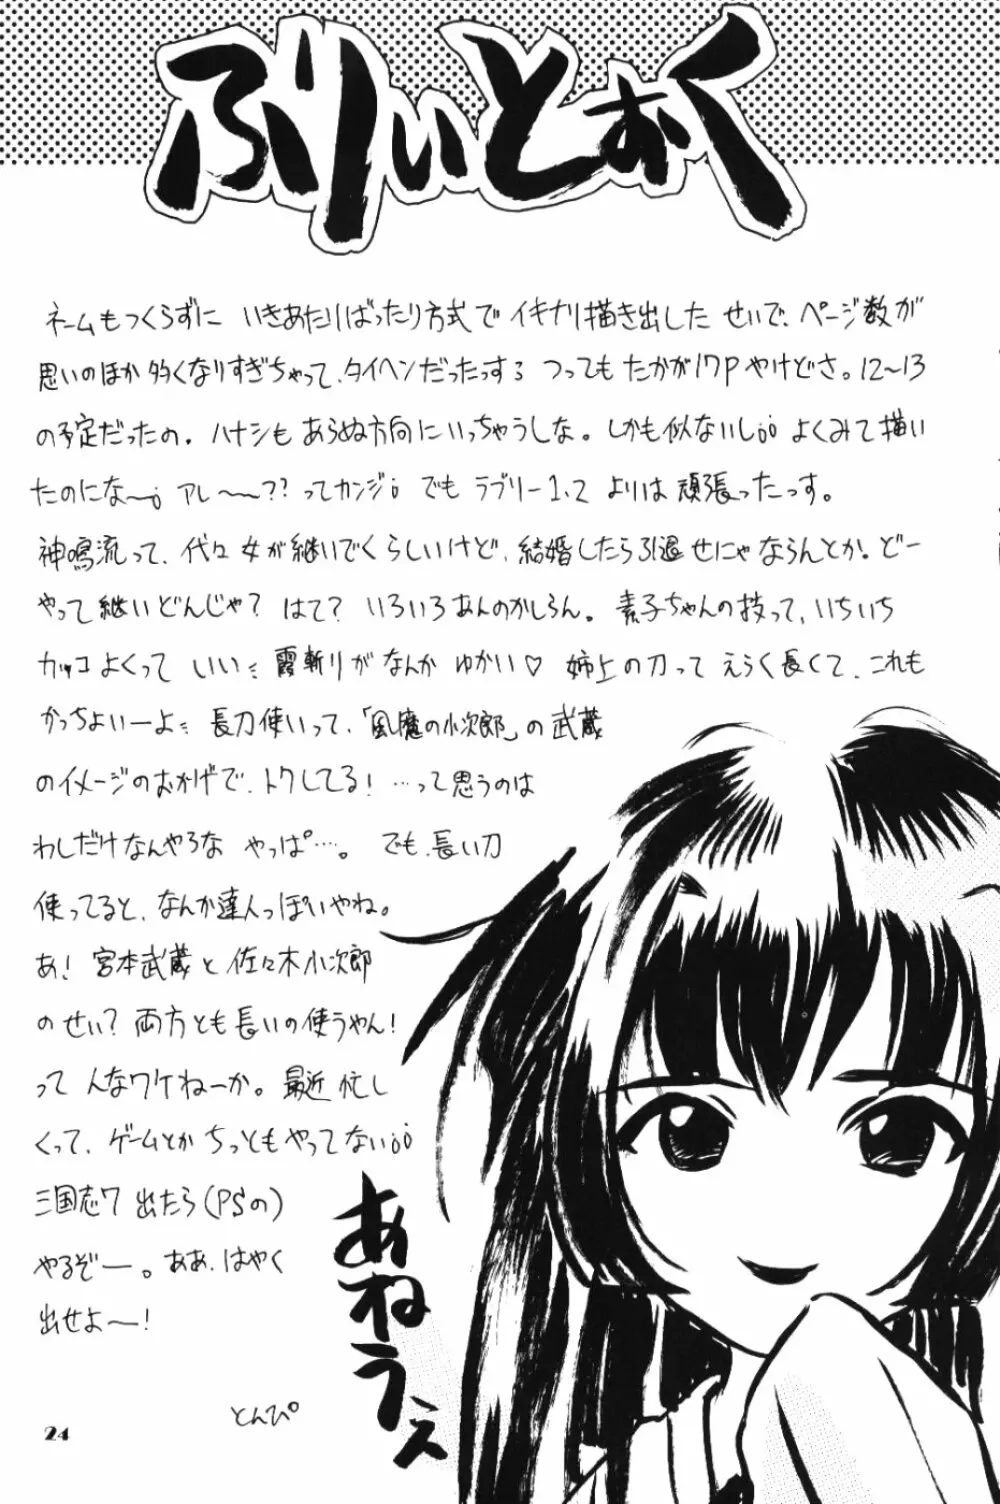 ふりぃとぉく
ネームもつくらずに いきあたりばったり方式で イキナリ描き出した せいで、ページ数が
思いのほか 多くなりすぎちゃって、タイヘンだったっする つっても たかが17P やけどさ。12〜13
の予定だったの。ハナシも あらぬ方向に いっちゃうしな。しかも似ないし¡¡ よくみて描い
たのにな〜¡ アレ〜〜?? ってカンジ¡ でも ラブリー1、2 よりは 頑張ったっす。
神鳴流って、代々女が継いでくらしいけど、結婚したら引退せにゃならんとか。どー
やって継いどんじゃ? はて? いろいろあんのかしらん。素子ちゃんの技って、いちいち
カッコよくって いい〃 霞斬りがなんか ゆかい♡ 姉上の刀って えらく長くて、これも
かっちょいーよ〃 長刀使いって、「風魔の小次郎」の武蔵
のイメージのおかげで、トクしてる! …って思うのは
わしだけなんやろな やっぱ…。でも、長い刀
使ってると、なんか達人っぽいやね。
あ! 宮本武蔵と佐々木小次郎
のせい? 両方とも長いの使うやん!
って んなワケねーか。最近 忙し
くって、ゲームとか ちっともやってない¡¡
三国志7 出たら(PSの)
やるぞー。ああ、はやく
出せよ〜!
とんぴ
あねうぇ
24